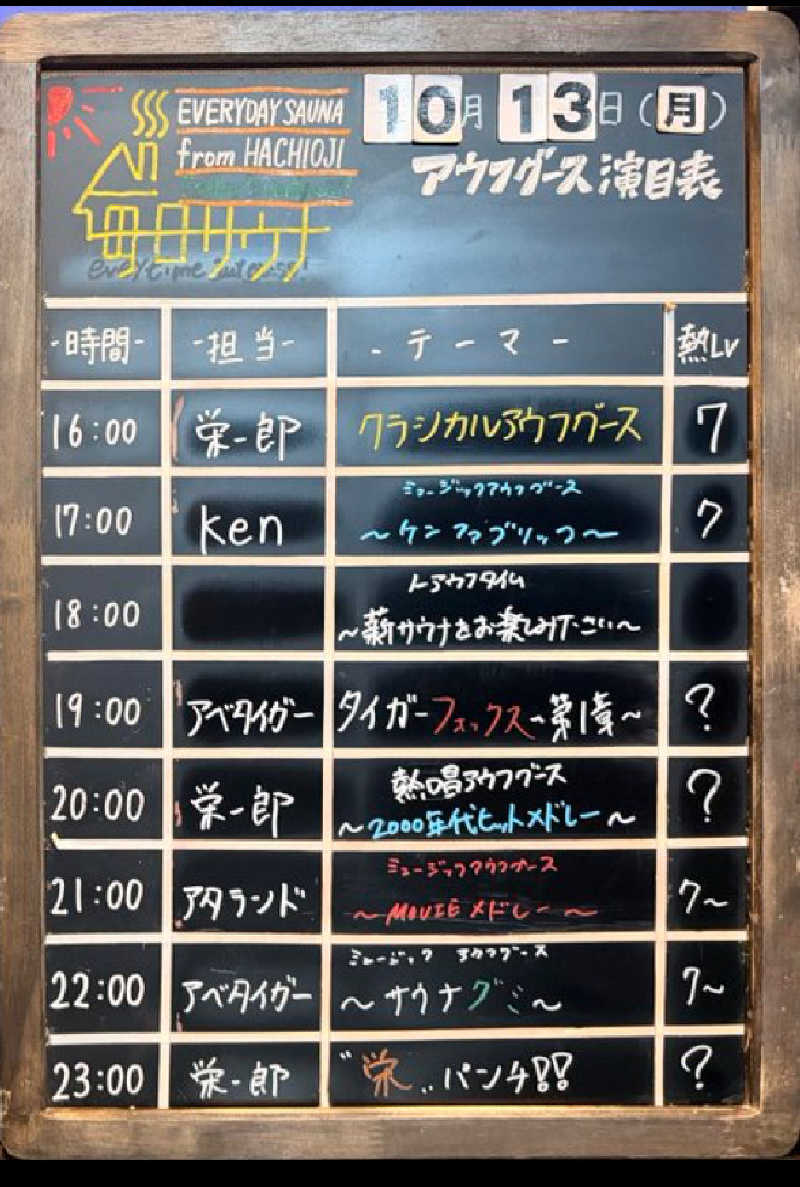 EVERYDAY SAUNA
from HACHIOJI
毎日サウナ
10月13日(月)
アウフグース演目表
-時間- -担当- -テーマ- 熱Lv
16:00 栄一郎 クラシカルアウフグース 7
17:00 ken ミュージックアウフグース
～ケンファブリック～ 7
18:00 アウフタイム
～薪サウナをお楽しみ下さい～
19:00 アベタイガー タイガーフォックス～第1章～ ?
20:00 栄一郎 熱唱アウフグース
～2000年代ヒットメドレー～ ?
21:00 アタランド ミュージックアウフグース
～MOVIEメドレー～ 7～
22:00 アベタイガー ミュージック アウフグース
～サウナグミ～ 7～
23:00 栄一郎 "栄"パンチ!! ?